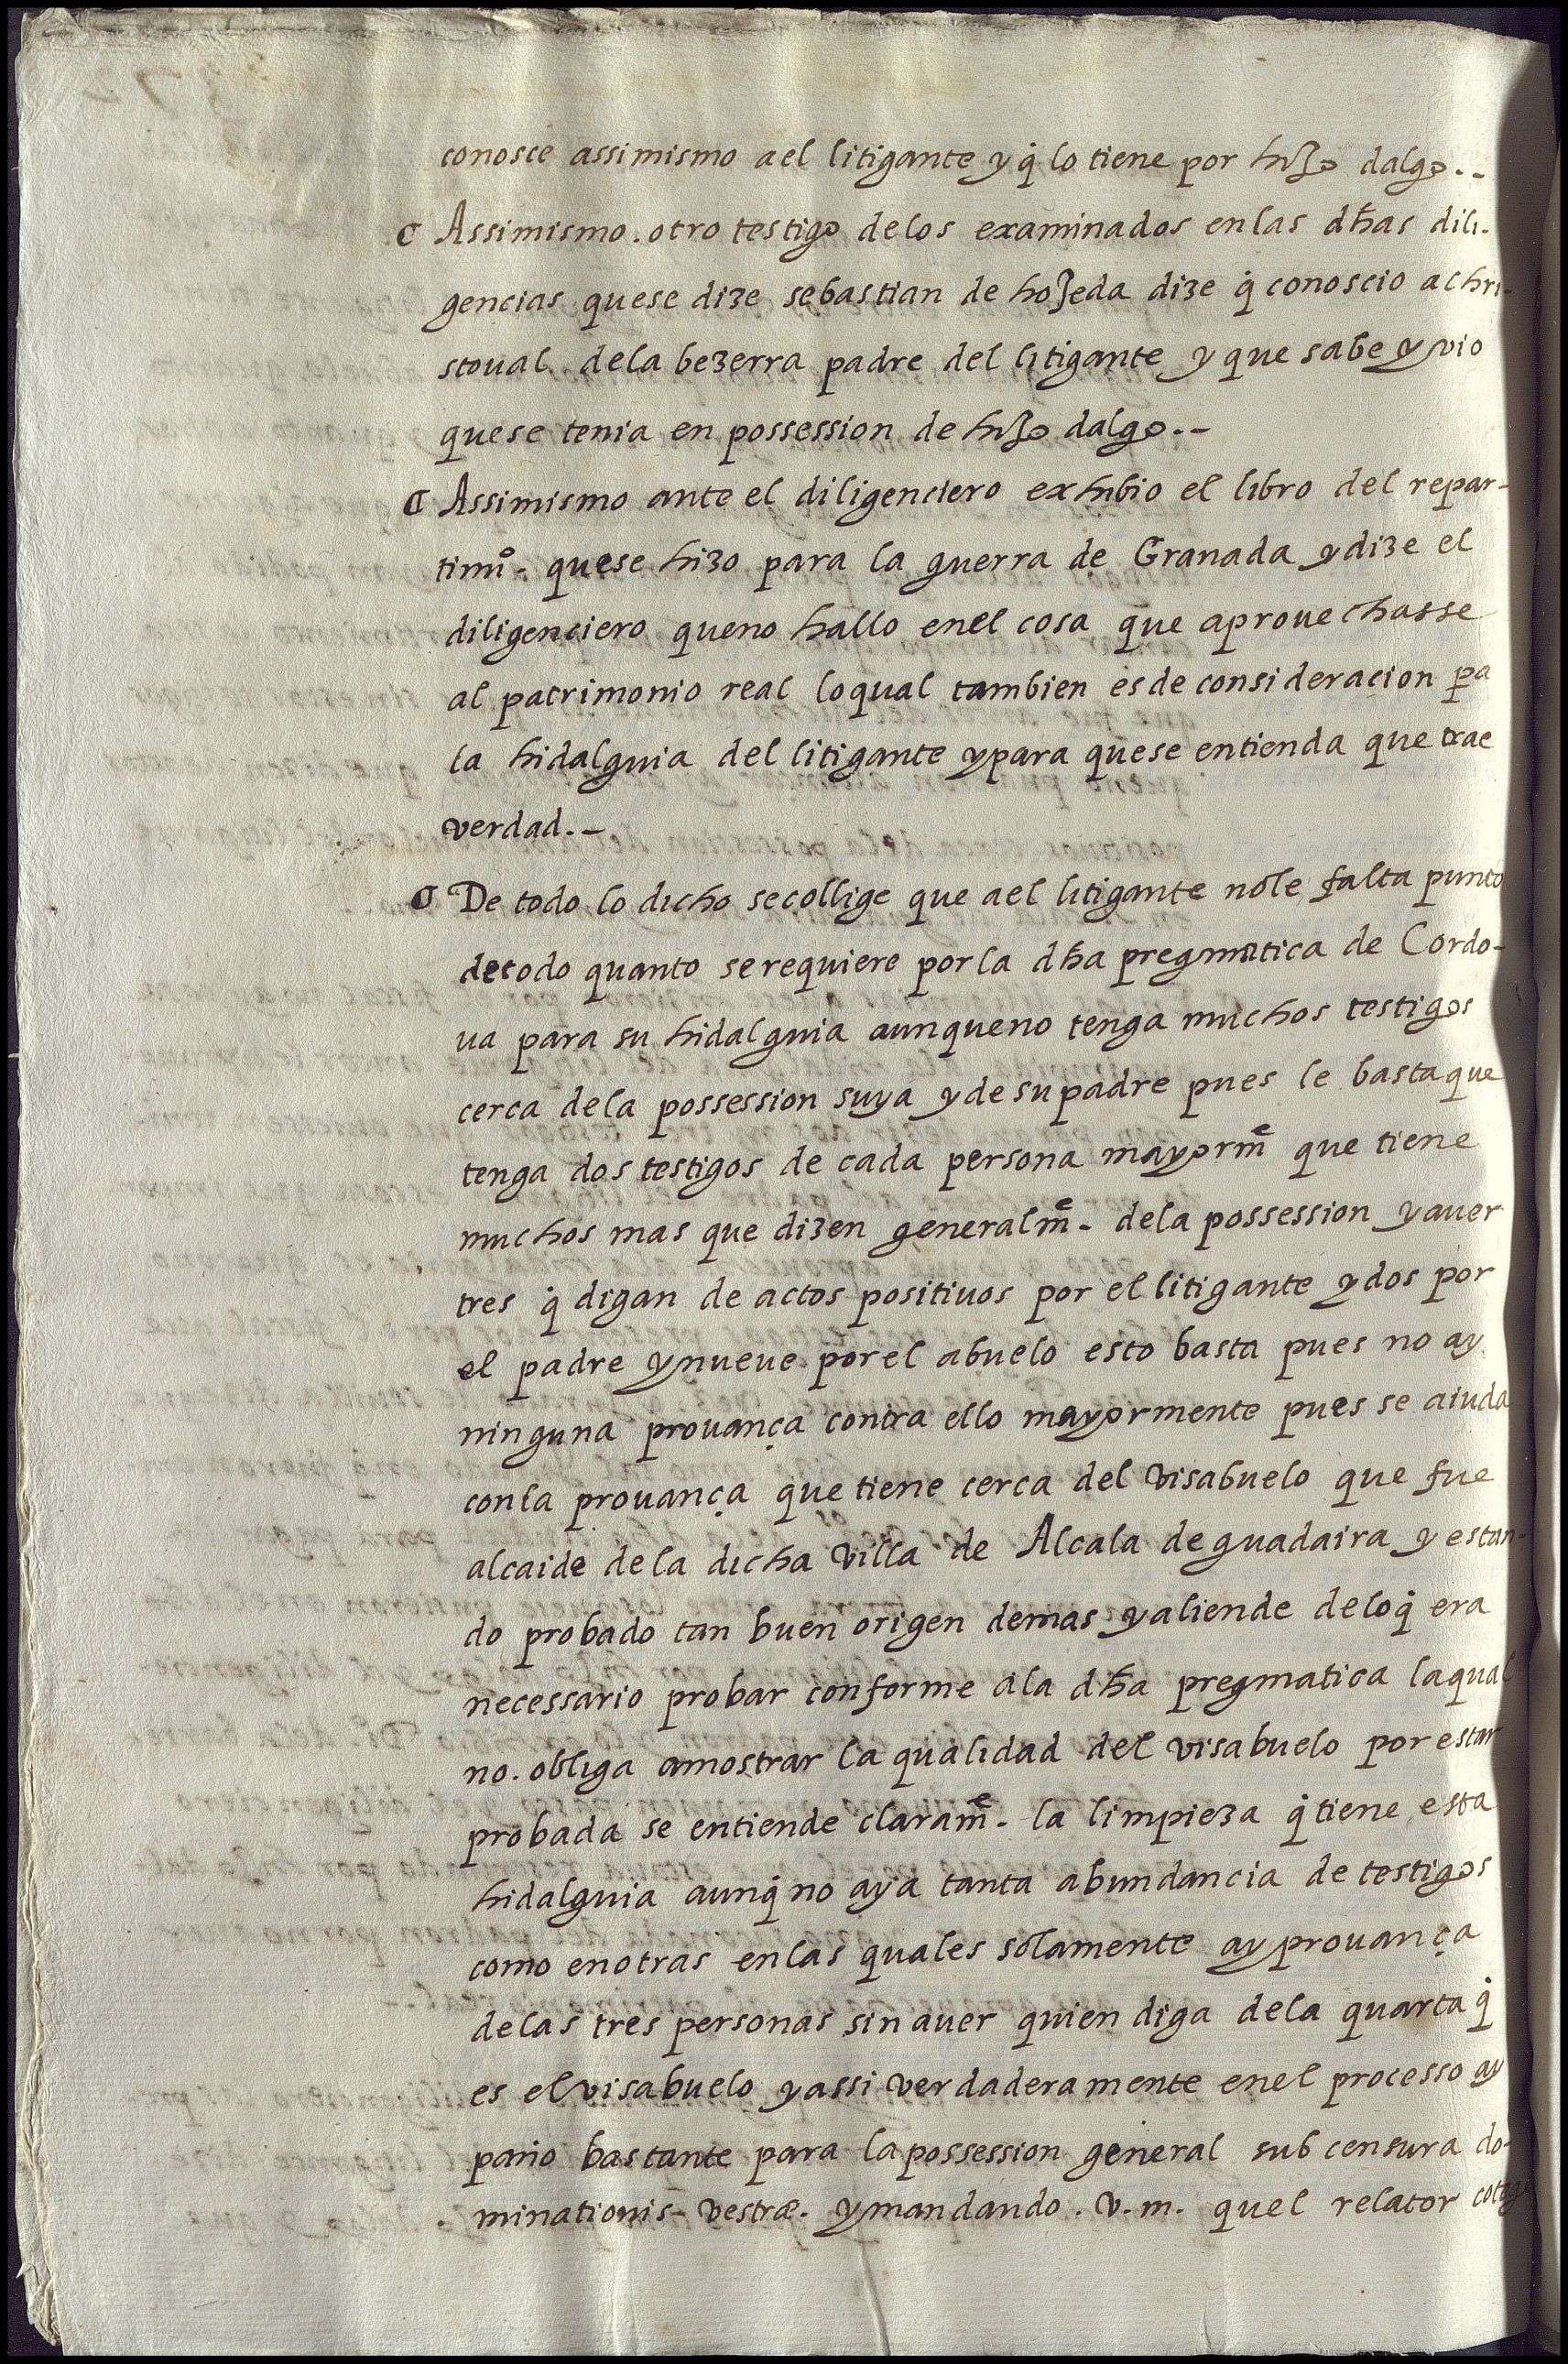 conosce assimismo a el litigante y q̃ lo tiene por hijo dalgo.-
¶ Assimismo. otro testigo de los examinados en las dħas dili-
gencias que se dize sebastian de hojeda dize q̃ conoscio a chri-
stoual de la bezerra padre del litigante y que sabe y vio
que se tenia en possession de hijo dalgo.-
¶ Assimismo ante el diligenciero exhibio el libro del repar-
timi.º que se hizo para la guerra de Granada y dize el
diligenciero que no hallo en el cosa que aprouechasse
al patrimonio real lo qual tambien es de consideracion pa
la hidalguia del litigante y para que se entienda que trae
verdad.-
¶ De todo lo dicho se collige que a el litigante no le falta punto
de todo quanto se requiere por la dħa pregmatica de Cordo-
ua para su hidalguia aunque no tenga muchos testigos
cerca de la possession suya y de su padre pues le basta que
tenga dos testigos de cada persona mayorm̃e que tiene
muchos mas que dizen generalm̃e. de la possession y auer
tres q̃ digan de actos positiuos por el litigante y dos por
el padre y nueue por el abuelo esto basta pues no ay
ninguna prouança contra ello mayormente pues se aiuda
con la prouança que tiene cerca del visabuelo que fue
alcaide de la dicha villa de Alcala de guadaira y estan-
do probado tan buen origen demas y aliende de lo q̃ era
necessario probar conforme a la dħa pregmatica la qual
no. obliga a mostrar la qualidad del visabuelo por estar
probada se entiende claram̃e. la limpieza q̃ tiene esta
hidalguia aunq̃ no aya tanta abundancia de testigos
como en otras en las quales solamente ay prouança
de las tres personas sin auer quien diga de la quarta q̃
es el visabuelo y assi verdaderamente en el processo ay
paño bastante para la possession general sub censura do-
minationis vestræ. y mandando. v. m. quel relator coteje